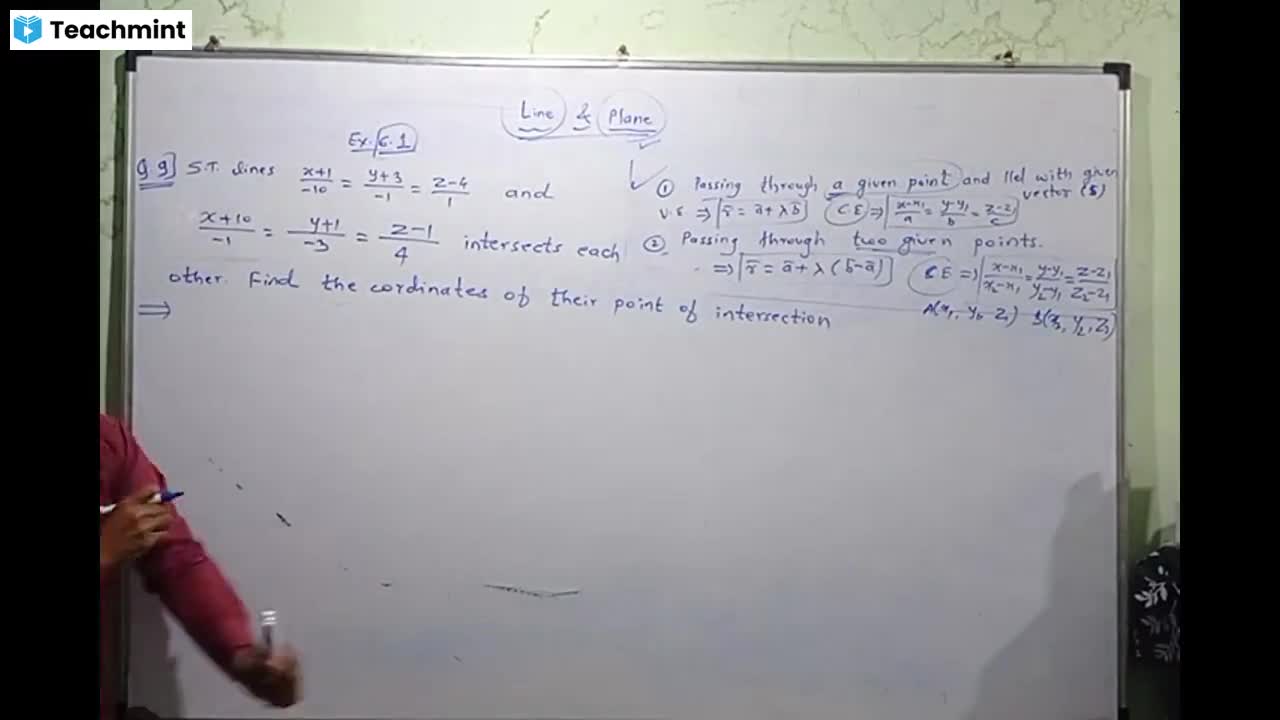 Teachmint
Line & Plane
Ex. 6.1
Q.9] S.T. lines x+1/-10 = y+3/-1 = z-4/1 and
x+10/-1 = y+1/-3 = z-1/4 intersects each
other. Find the cordinates of their point of intersection
⇒
① Passing through a given point and llel with given
vector (b̄)
V.E ⇒ r̄ = ā + λb̄ C.E ⇒ x-x₁/a = y-y₁/b = z-z₁/c
② Passing through two given points.
⇒ r̄ = ā + λ(b̄-ā) C.E ⇒ x-x₁/x₂-x₁ = y-y₁/y₂-y₁ = z-z₁/z₂-z₁
A(x₁, y₁, z₁)